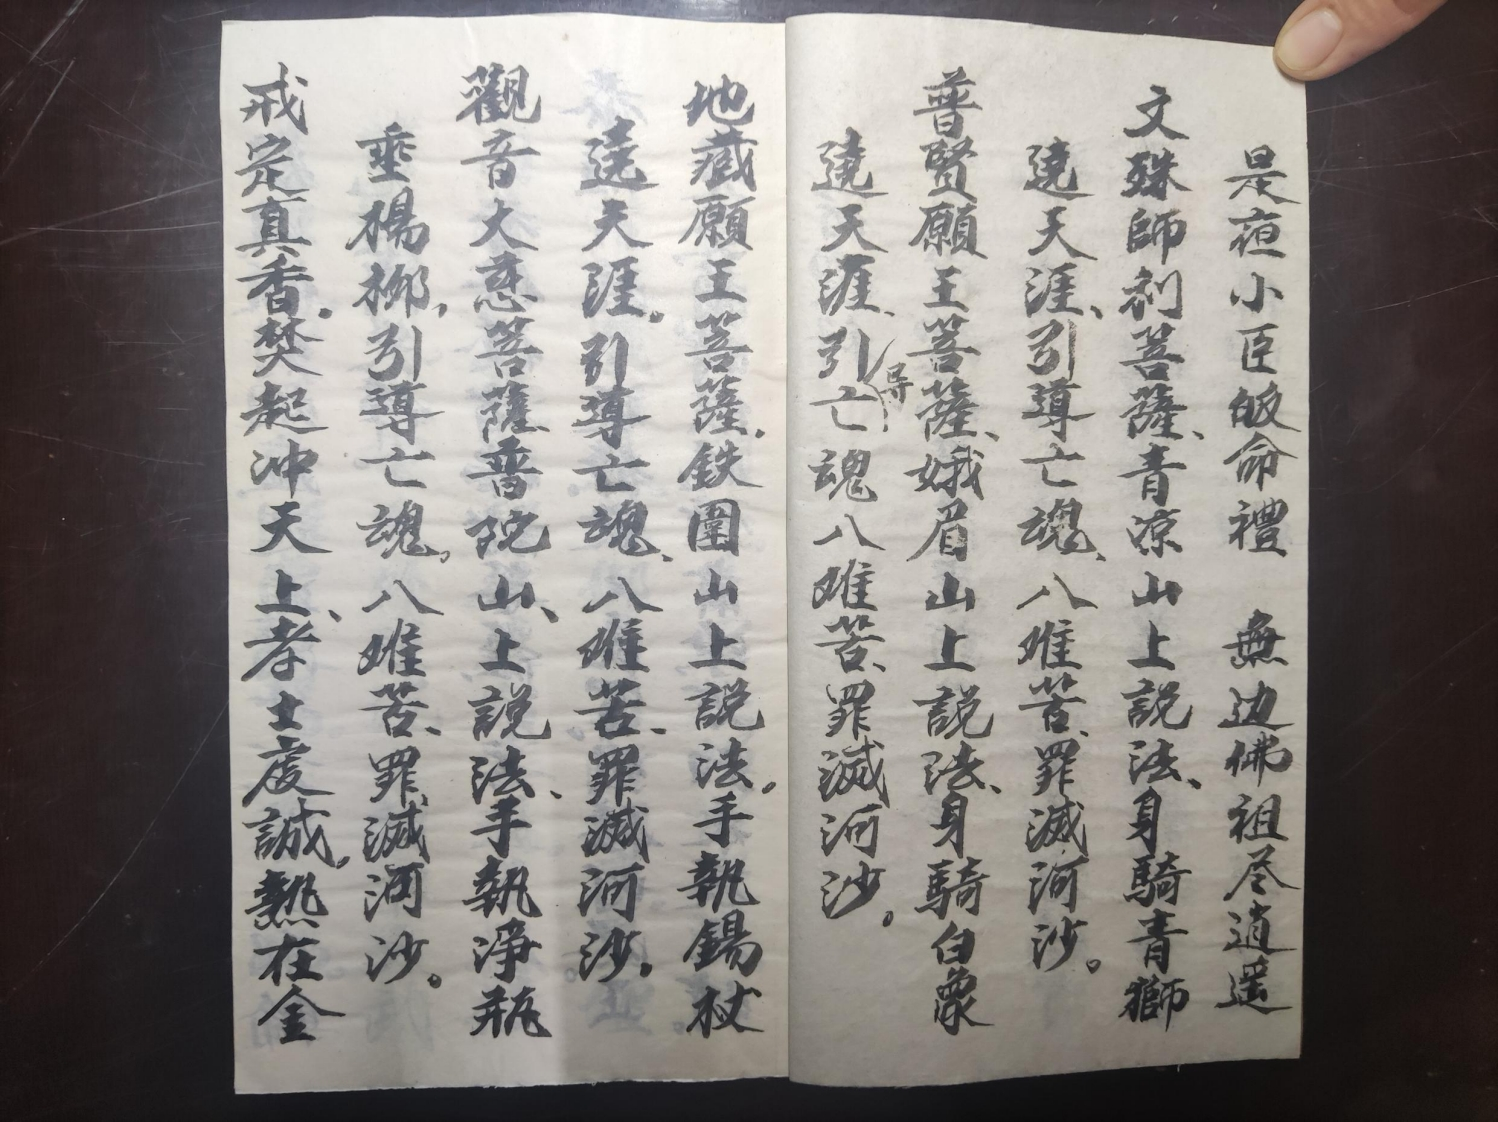 是夜小臣皈命禮　無边佛祖尽逍遥
文殊師利菩薩、青凉山上説法、身騎青獅
遶天涯、引導亡魂、八难苦、罪滅河沙。
普賢願王菩薩、娥眉山上説法、身騎白象
遶天涯、引导亡魂八难苦、罪滅河沙。
地藏願王菩薩.鉄圍山上説法.手執錫杖
遶天涯.引導亡魂、八难苦、罪滅河沙.
觀音大慈菩薩普陀山、上説法、手執净瓶
垂楊柳,引導亡魂,八难苦、罪滅河沙。
戒定真香.焚起冲天上、孝士虔誠,熱在金